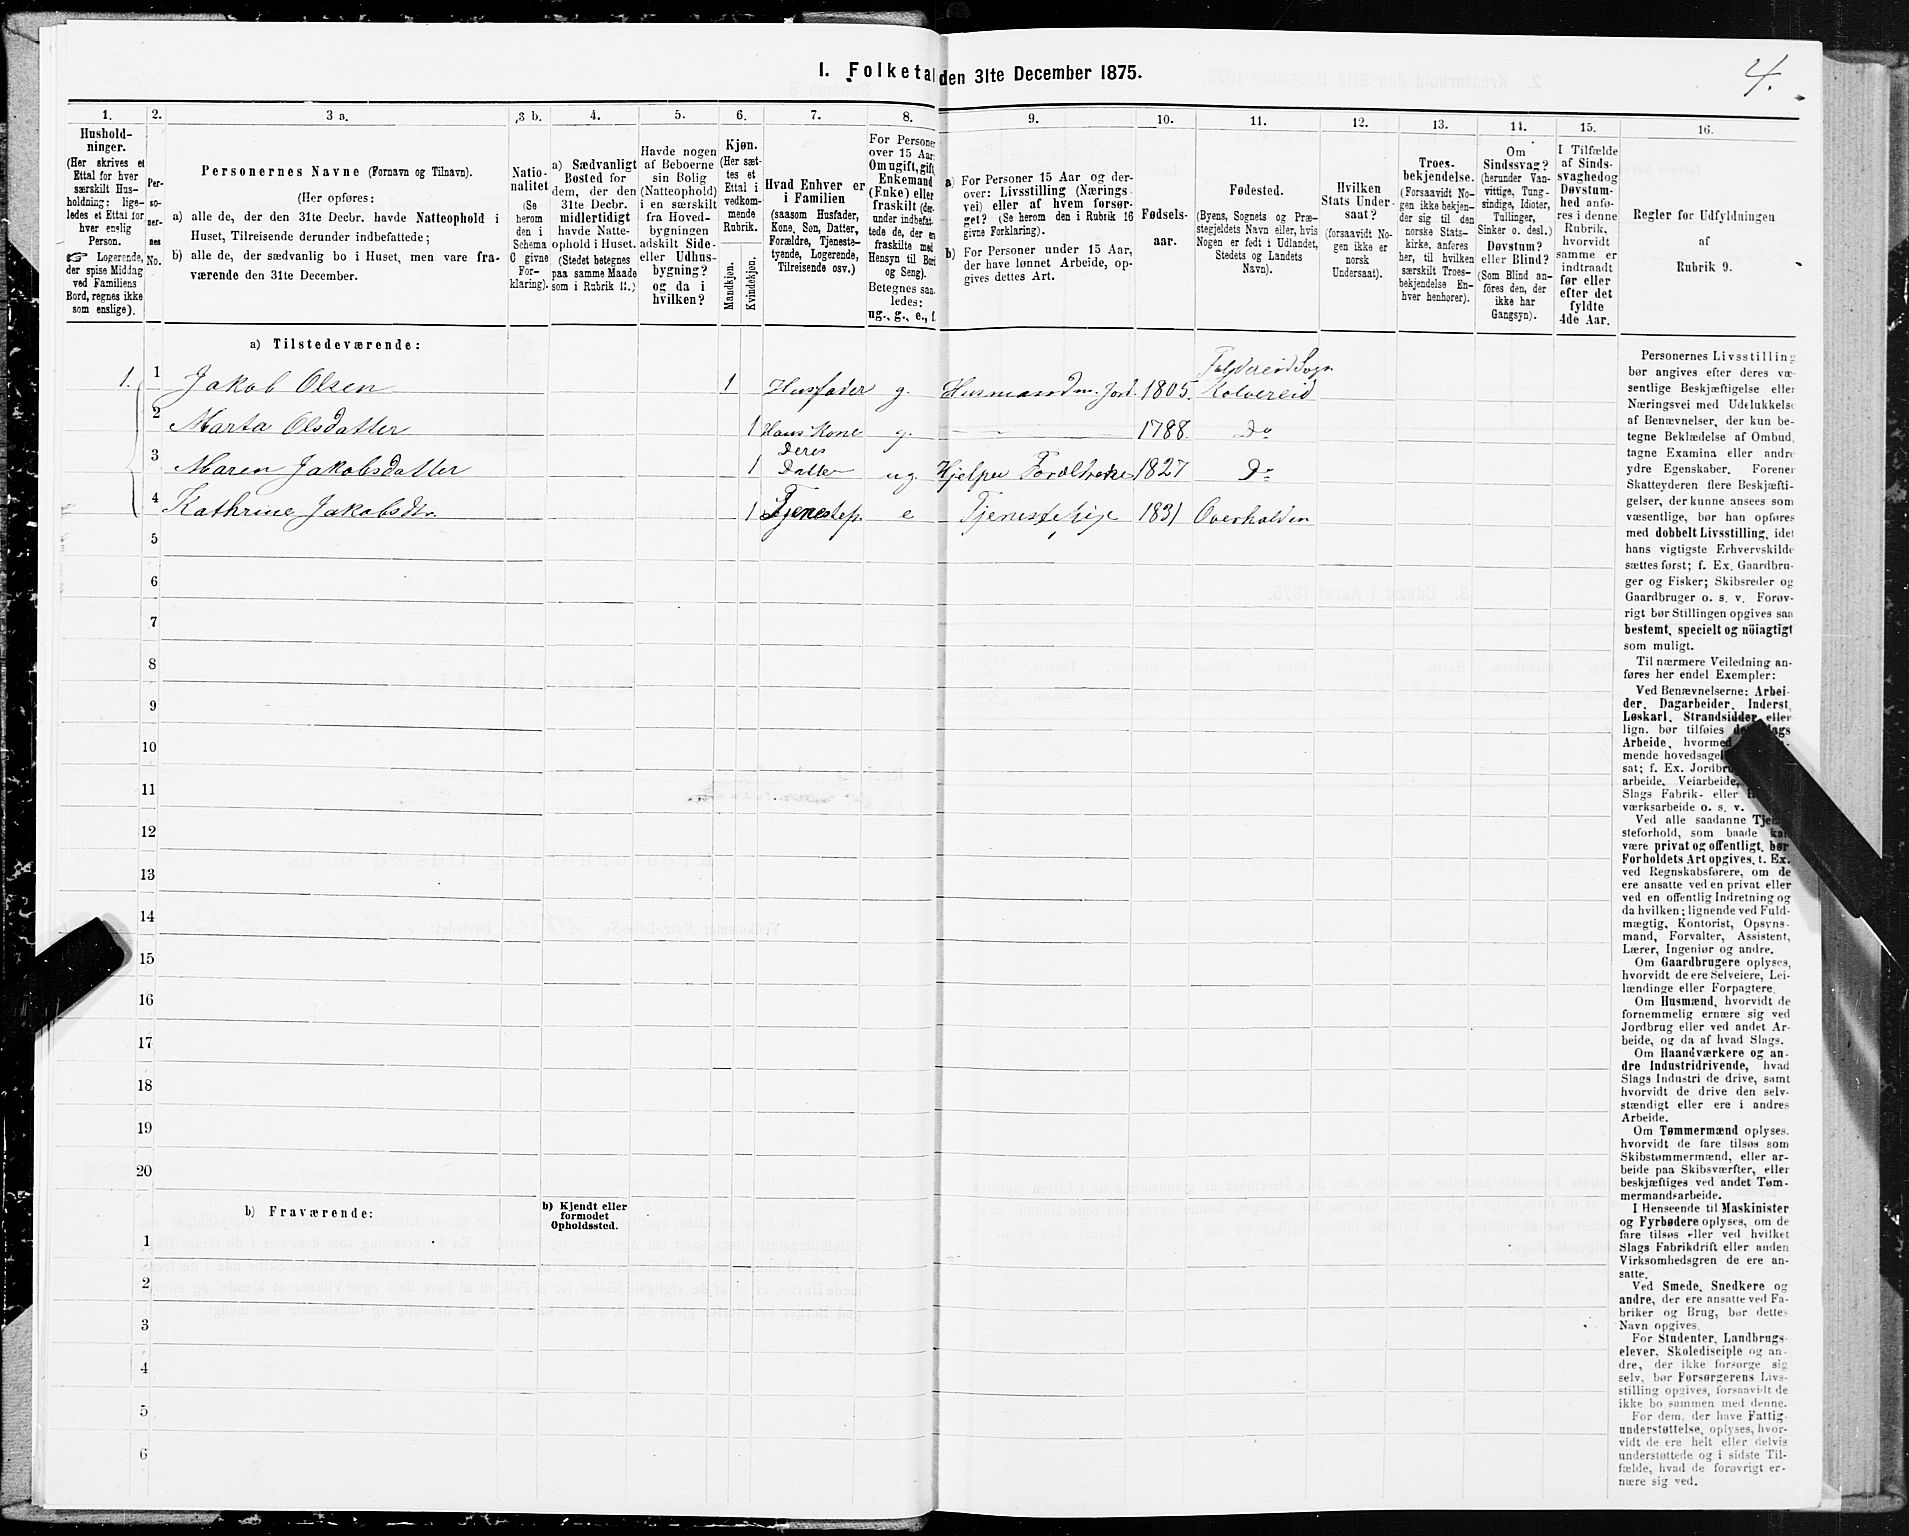 I. Folketal den 31te December 1875.
4.
1.
2.
3 a.
3 b.
4.
5.
6.
7.
8.
9.
10.
11.
12.
13.
14.
15.
16.
Hushold-
ninger.
(Her skrives et
Ettal for hver
særskilt Hus-
holdning: lige-
ledes et Ettal for
hver enslig
Person.
☞ Logerende,
der spise Middag
ved Familiens
Bord, regnes ikke
som enslige).
Per-
so-
ner-
nes
No.
Personernes Navne (Fornavn og Tilnavn).
(Her opføres:
a) alle de, der den 31te Decbr. havde Natteophold i
Huset, Tilreisende derunder indbefattede;
b) alle de, der sædvanlig bo i Huset, men vare fra-
værende den 31te December.
Natio-
nalitet
(Se
herom
den i
Schema
C givne
For-
klaring).
a) Sædvanligt
Bosted for
dem, der den
31te Decbr.
midlertidigt
havde Natte-
ophold i Huset.
(Stedet betegnes
paa samme Maade
som i Rubrik 11.)
Havde nogen
af Beboerne
sin Bolig
(Natteophold)
i en særskilt
fra Hoved-
bygningen
adskilt Side-
eller Udhus-
bygning?
og da i
hvilken?
Kjøn.
(Her sæt-
tes et
Ettal i
vedkom-
mende
Rubrik.
Mandkjøn.
Kvindekjøn.
Hvad Enhver er
i Familien
(saasom Husfader,
Kone, Søn, Datter,
Forældre, Tjeneste-
tyende, Logerende,
Tilreisende osv.)
For Personer
over 15 Aar:
Om ugift, gift,
Enkemand
(Enke) eller
fraskilt (der-
under indbefat-
tede de, der ere
fraskilte med
Hensyn til Bord
og Seng).
Betegnes saa-
ledes:
ug., g., e., f.
a) For Personer 15 Aar og der-
over: Livsstilling (Nærings-
vei) eller af hvem forsør-
get? (Se herom den i Rubrik 16
givne Forklaring).
b) For Personer under 15 Aar,
der have lønnet Arbeide, op-
gives dettes Art.
Fødsels-
aar.
Fødested.
(Byens, Sognets og Præ-
stegjeldets Navn eller, hvis
Nogen er født i Udlandet,
Stedets og Landets
Navn).
Hvilken
Stats Under-
saat?
(forsaavidt No-
gen ikke er
norsk
Undersaat).
Troes-
bekjendelse.
(Forsaavidt No-
gen ikke bekjen-
der sig til den
norske Stats-
kirke, anføres
her, til hvilken
særskilt Troes-
bekjendelse En-
hver henhorer).
Om
Sindssvag?
(herunder Van-
vittige, Tung-
sindige, Idioter,
Tullinger,
Sinker o. desl.)
Døvstum?
eller Blind?
(Som Blind an-
föres den, der
ikke har
Gangsyn).
I Tilfælde
af Sinds-
svaghed og
Døvstum-
hed anfø-
res i denne
Rubrik,
hvorvidt
samme er
indtraadt
før eller
efter det
fyldte
4de Aar.
Regler for Udfyldningen
af
Rubrik 9.
a) Tilstedeværende:
1. 1 Jakob Olsen 1 Husfader g. Husmand m. Jord. 1805. Foldereid Sogn Kolvereid
2 Marta Olsdatter 1 Hans Kone g. — 1788. Do
3 Maren Jakobsdatter 1 Deres Datter ug. Hjelper Foreldrene 1827 Do
4 Kathrine Jakobsdtr. 1 Tjenestep. e Tjenestepige 1831 Overhalden
5
6
7
8
9
10
11
12
13
14
15
16
17
18
19
20
b) Fraværende:
b) Kjendt eller
formodet
Opholdssted.
1
2
3
4
5
6
Personernes Livsstilling
bør angives efter deres væ-
sentlige Beskjæftigelse eller
Næringsvei med Udelukkelse
af Benævnelser, der kun be-
tegne Beklædelse af Ombud,
tagne Examina eller andre
ydre Egenskaber. Forener
Skatteyderen flere Beskjæfti-
gelser, der kunne ansees som
væsentlige, bør han opføres
med dobbelt Livsstilling, idet
hans vigtigste Erhvervskilde
sættes først; f. Ex. Gaardbru-
ger og Fisker; Skibsreder og
Gaardbruger o. s. v. Forøv-
rigt bør Stillingen opgives saa
bestemt, specielt og nöiagtigt
som muligt.
Til nærmere Veiledning an-
føres her endel Exempler:
Ved Benævnelserne: Arbei-
der, Dagarbeider, Inderst,
Løskarl, Strandsidder eller
lign. bør tilføies
Arbeide, hvormed
mende hovedsage
sat; f. Ex.
arbeide, Veiarbeide,
Slags Fabrik- eller
værksarbeide o. s. v.
Ved alle saadanne
steforhold, som baade
være privat og offentligt, bør
Forholdets Art opgives, t. Ex.
ved Regnskabsførere, om de
ere ansatte ved en privat eller
ved en offentlig Indretning og
da hvilken; lignende ved Fuld-
mægtig, Kontorist, Opsyns-
mand, Forvalter, Assistent,
Lærer, Ingeniør og andre.
Om Gaardbrugere oplyses,
hvorvidt de ere Selveiere, Lei-
lændinge eller Forpagtere.
Om Husmænd, hvorvidt de
fornemmelig ernære sig ved
Jordbrug eller ved andet Ar-
beide, og da af hvad Slags.
Om Haandværkere og an-
dre Industridrivende, hvad
Slags Industri de drive, samt
hvorvidt de drive den selv-
stændigt eller ere i andres
Arbeide.
Om Tømmermænd oplyses,
hvorvidt de fare tilsøs som
Skibstømmermænd, eller ar-
beide paa Skibsværfter, eller
beskjæftiges ved andet Tøm-
mermandsarbeide.
I Henseende til Maskinister
og Fyrbødere oplyses, om de
fare tilsøs eller ved hvilket
Slags Fabrikdrift eller anden
Virksomhedsgren de ere an-
satte.
Ved Smede, Snedkere og
andre, der ere ansatte ved Fa-
briker og Brug, bør dettes
Navn opgives.
For Studenter, Landbrugs-
elever, Skoledisciple og an-
dre, der ikke forsørge sig
selv, bør Forsørgerens Livs-
stilling opgives, forsaavidt de
ikke bo sammen med denne.
For dem, der have Fattig-
understøttelse, oplyses, hvor-
vidt de ere helt eller delvis
understøttede og i sidste Til-
fælde, hvad de forøvrigt er-
nære sig ved.